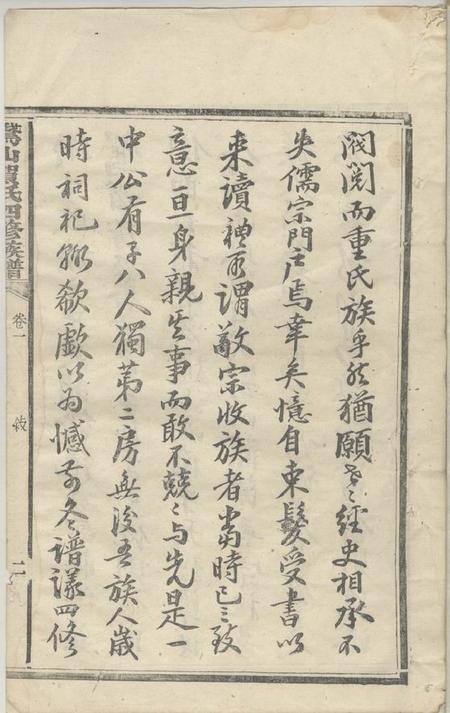 閥閱而重氏族乎然猶願世々經史相承不
失儒宗門戶焉幸矣憶自束髮受書以
來讀禮所謂敬宗收族者當時已三致
意一旦身親其事而敢不兢々與先是一
中公有子八人獨第二房無後吾族人歲
時祠祀輒欷歔以為憾前冬譜議四修
山賀氏四修族譜
卷一
二